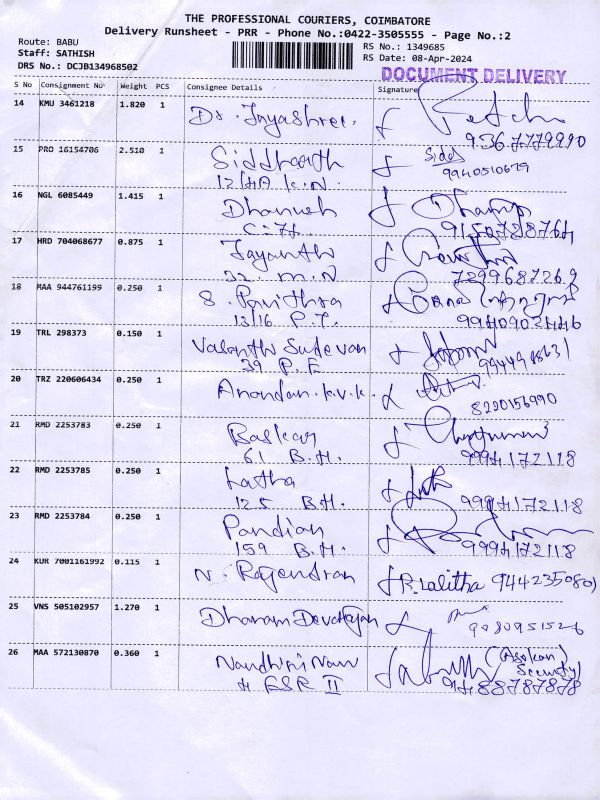 THE PROFESSIONAL COURIERS, COIMBATORE
Delivery Runsheet - PRR - Phone No.:0422-3505555 - Page No.:2
Route: BABU
Staff: SATHISH
DRS No.: DCJB134968502
RS No.: 1349685
RS Date: 08-Apr-2024
DOCUMENT DELIVERY
S No Consignment No Weight PCS Consignee Details Signature
14 KMU 3461218 1.820 1 Dr. Jayashree.
9367779990
15 PRO 16154706 2.510 1 Siddharth
12/4A K.N. 9940510679
16 NGL 6085449 1.415 1 Dhanush
C-7H. 9150728764
17 HRD 704068677 0.875 1 Jayanthi
32. M.N 7299687269
18 MAA 944761199 0.250 1 S. Pavithra
13/16 P.T. 9940902446
19 TRL 298373 0.150 1 Vasanthi Sudevan
39 P.E 9444948631
20 TRZ 220606434 0.250 1 Anandan.K.V.K.
8220156990
21 RMD 2253783 0.250 1 Baskar
61 B.H. 9994172118
22 RMD 2253785 0.250 1 Latha
125 B.H. 9994172118
23 RMD 2253784 0.250 1 Pandian
159 B.H. 9994172118
24 KUR 7001161992 0.115 1 N. Rajendran R. Lalitha 9442350801
25 VNS 505102957 1.270 1 Dharam Devarajan
9080951526
26 MAA 572130870 0.360 1 Nandhini Nair (Asokan)
4 ESR II Security)
9488787878